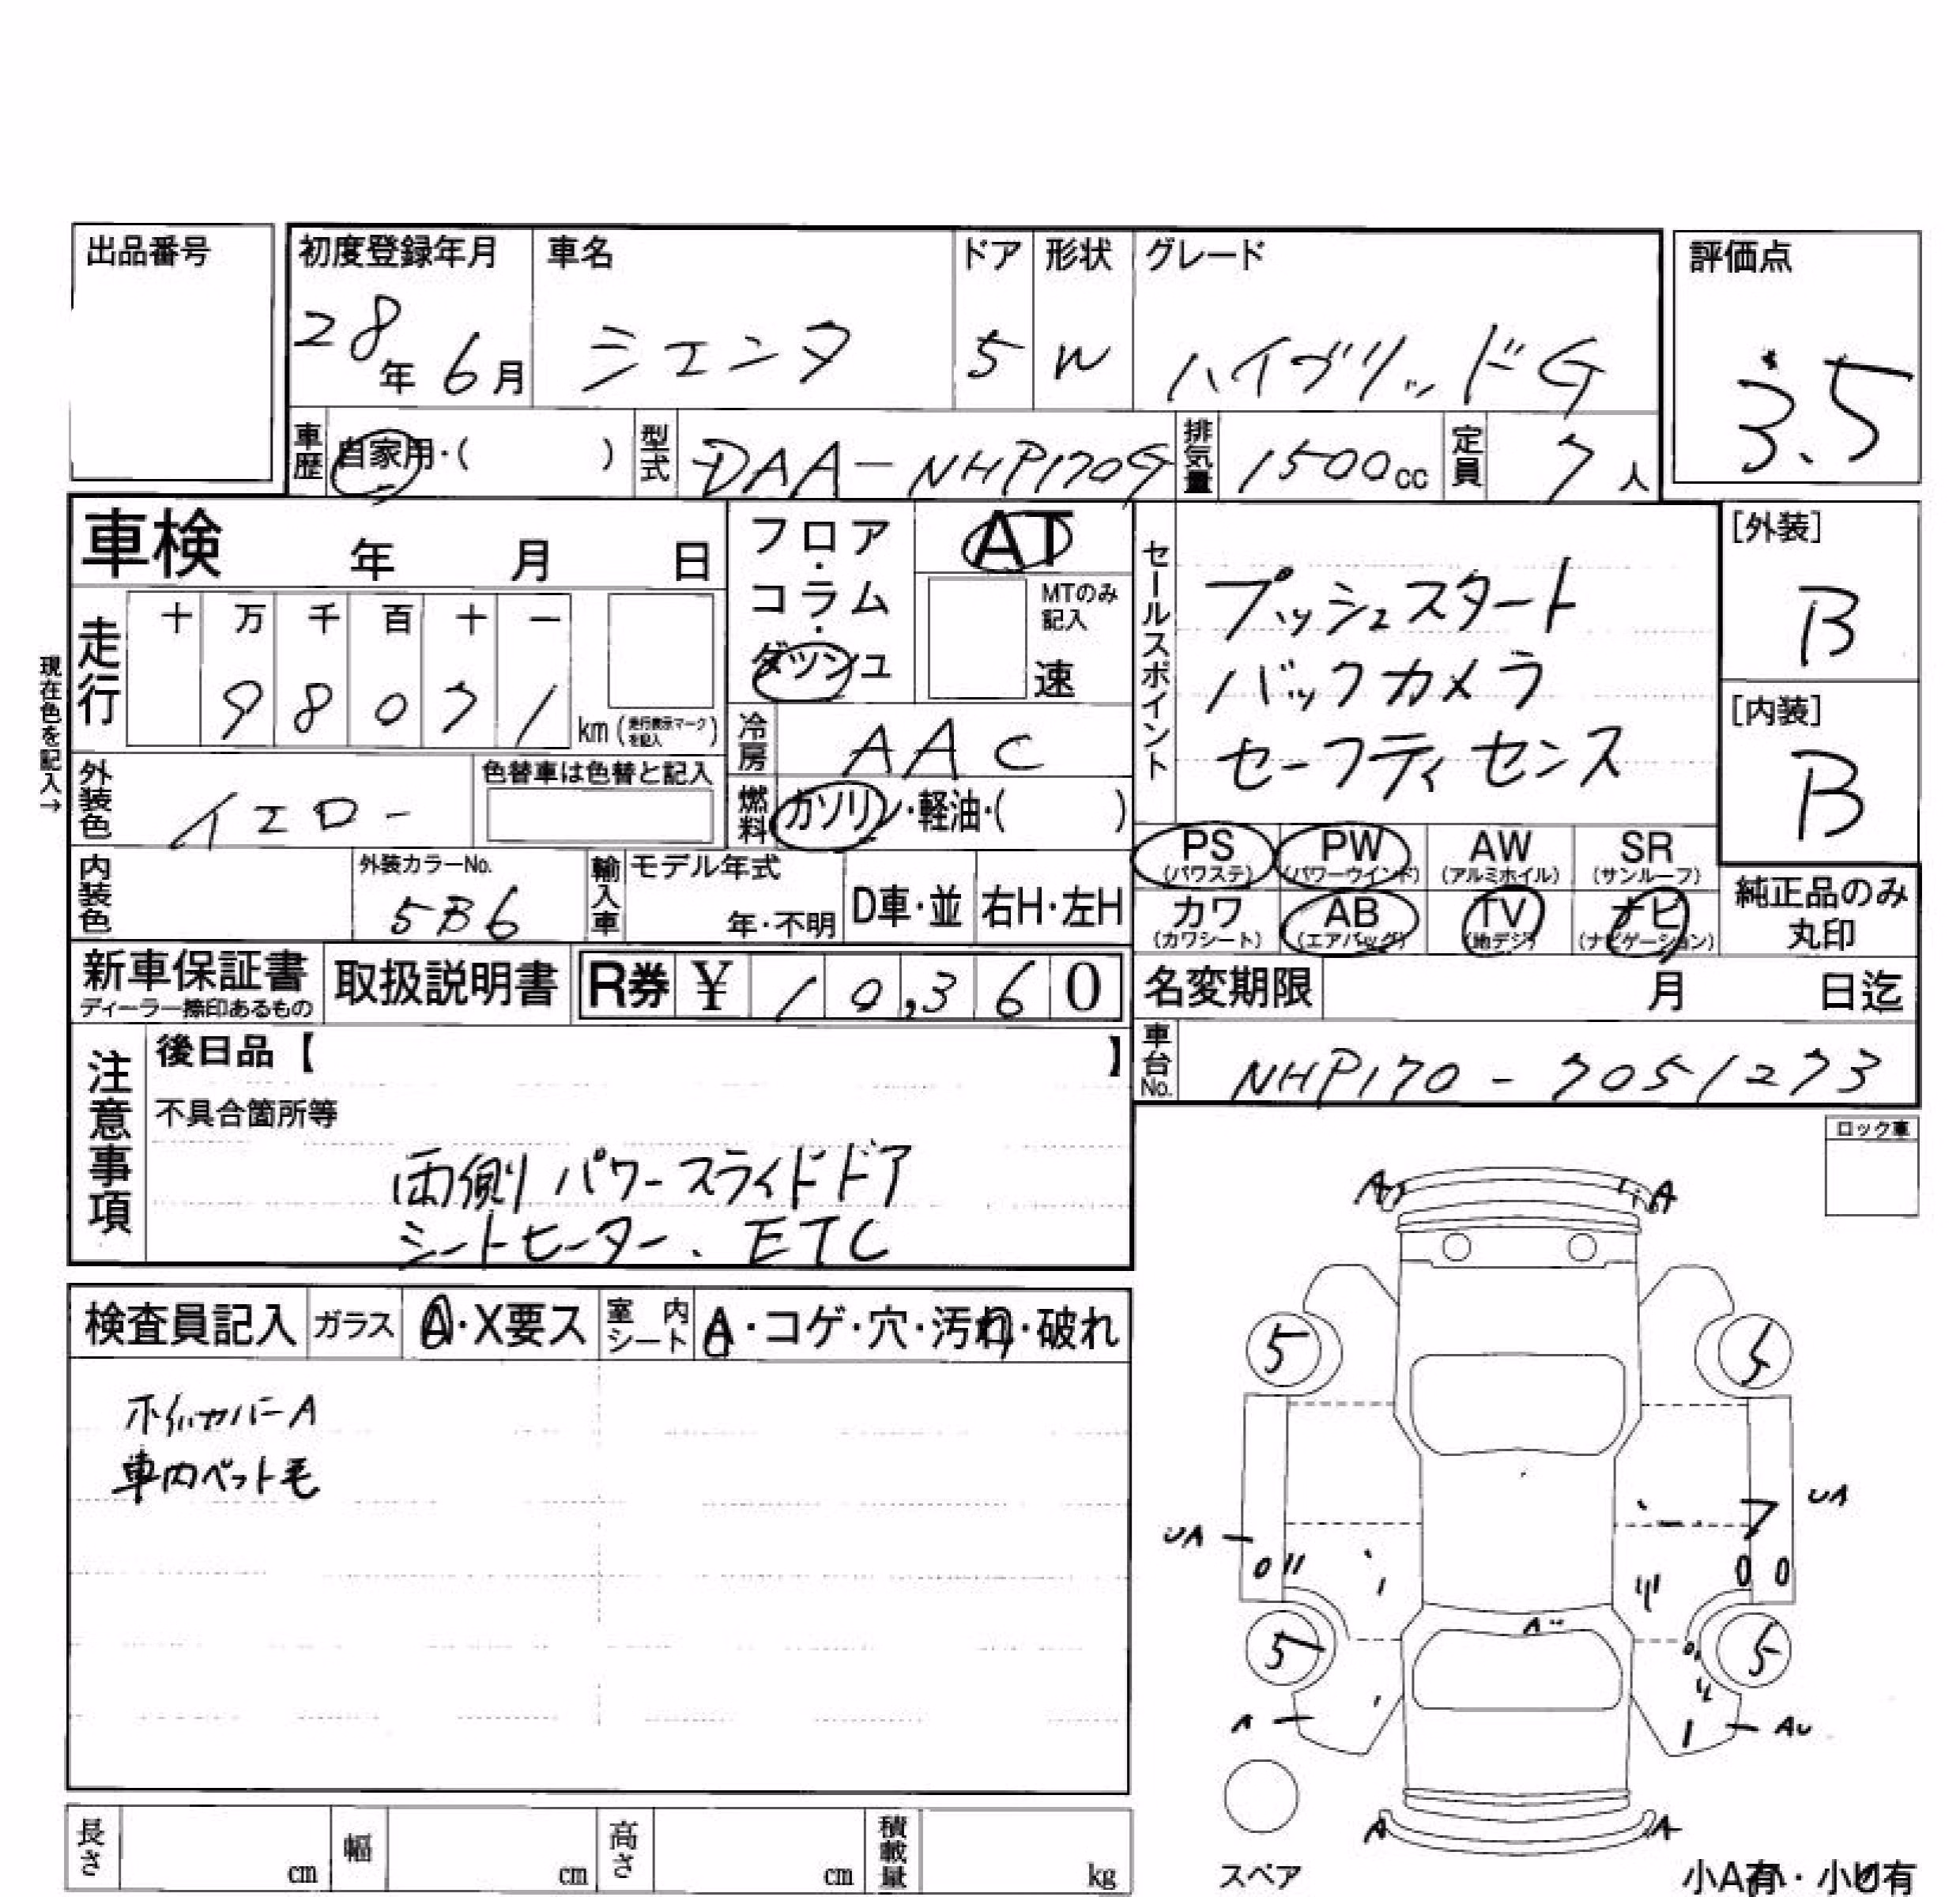 出品番号
初度登録年月 車名 ドア 形状 グレード 評価点
28年 6月 シエンタ 5 W ハイブリッドG 3.5
車歴 自家用・( ) 型式 DAA-NHP170G 排気量 1500cc 定員 7人
車検 年 月 日
フロア・コラム・ダッシュ
AT
MTのみ記入
速
走行 十 万 千 百 十 一
98071 km (走行表示マークを記入)
現在色を記入→
冷房 AAC
燃料 ガソリン・軽油・( )
外装色 イエロー 色替車は色替と記入
内装色 外装カラーNo. 5B6
輸入車 モデル年式 年・不明 D車・並 右H・左H
セールスポイント
プッシュスタート
バックカメラ
セーフティセンス
[外装]
B
[内装]
B
PS (パワステ) PW (パワーウインド) AW (アルミホイル) SR (サンルーフ)
カワ (カワシート) AB (エアバッグ) TV (地デジ) ナビ (ナビゲーション)
純正品のみ丸印
新車保証書 ディーラー捺印あるもの 取扱説明書 R券 ¥ 10,360
名変期限 月 日迄
車台No. NHP170-7051273
注意事項
後日品【 】
不具合箇所等
両側パワースライドドア
シートヒーター、ETC
ロック車
検査員記入 ガラス A・X要ス 室内シート A・コゲ・穴・汚れ・破れ
ホイルカバーA
車内ペット毛
A A
5 5
UA UA
A
5 5
A AU
A A
スペア
小A有・小U有
長さ cm 幅 cm 高さ cm 積載量 kg